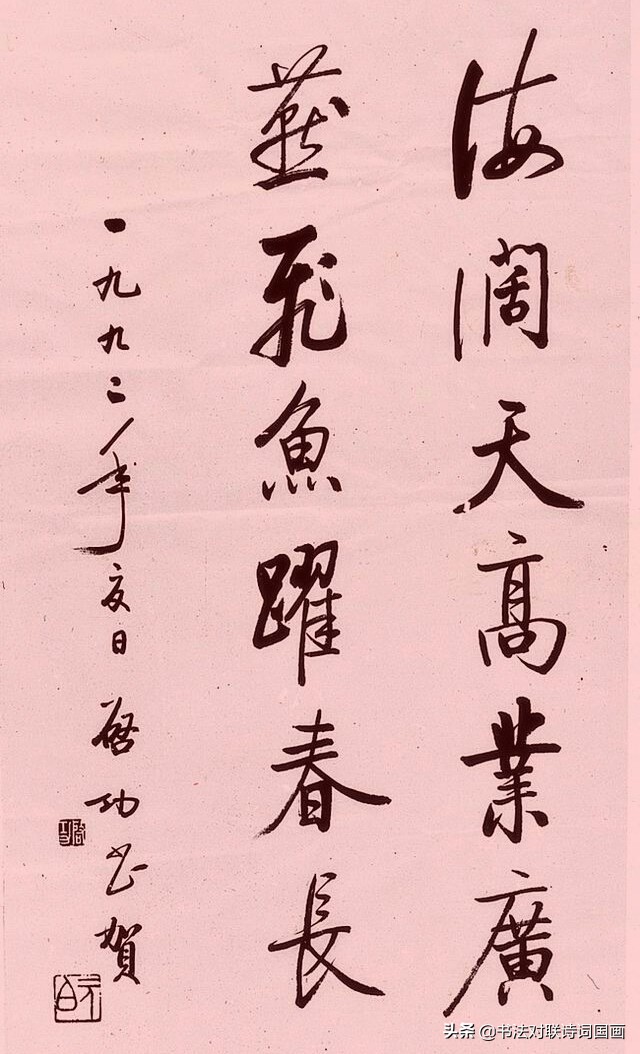 海闊天高業廣
燕飛魚躍春長
一九九二年夏日 啓功書賀
啓功
元白
头条 @书法对联诗词国画